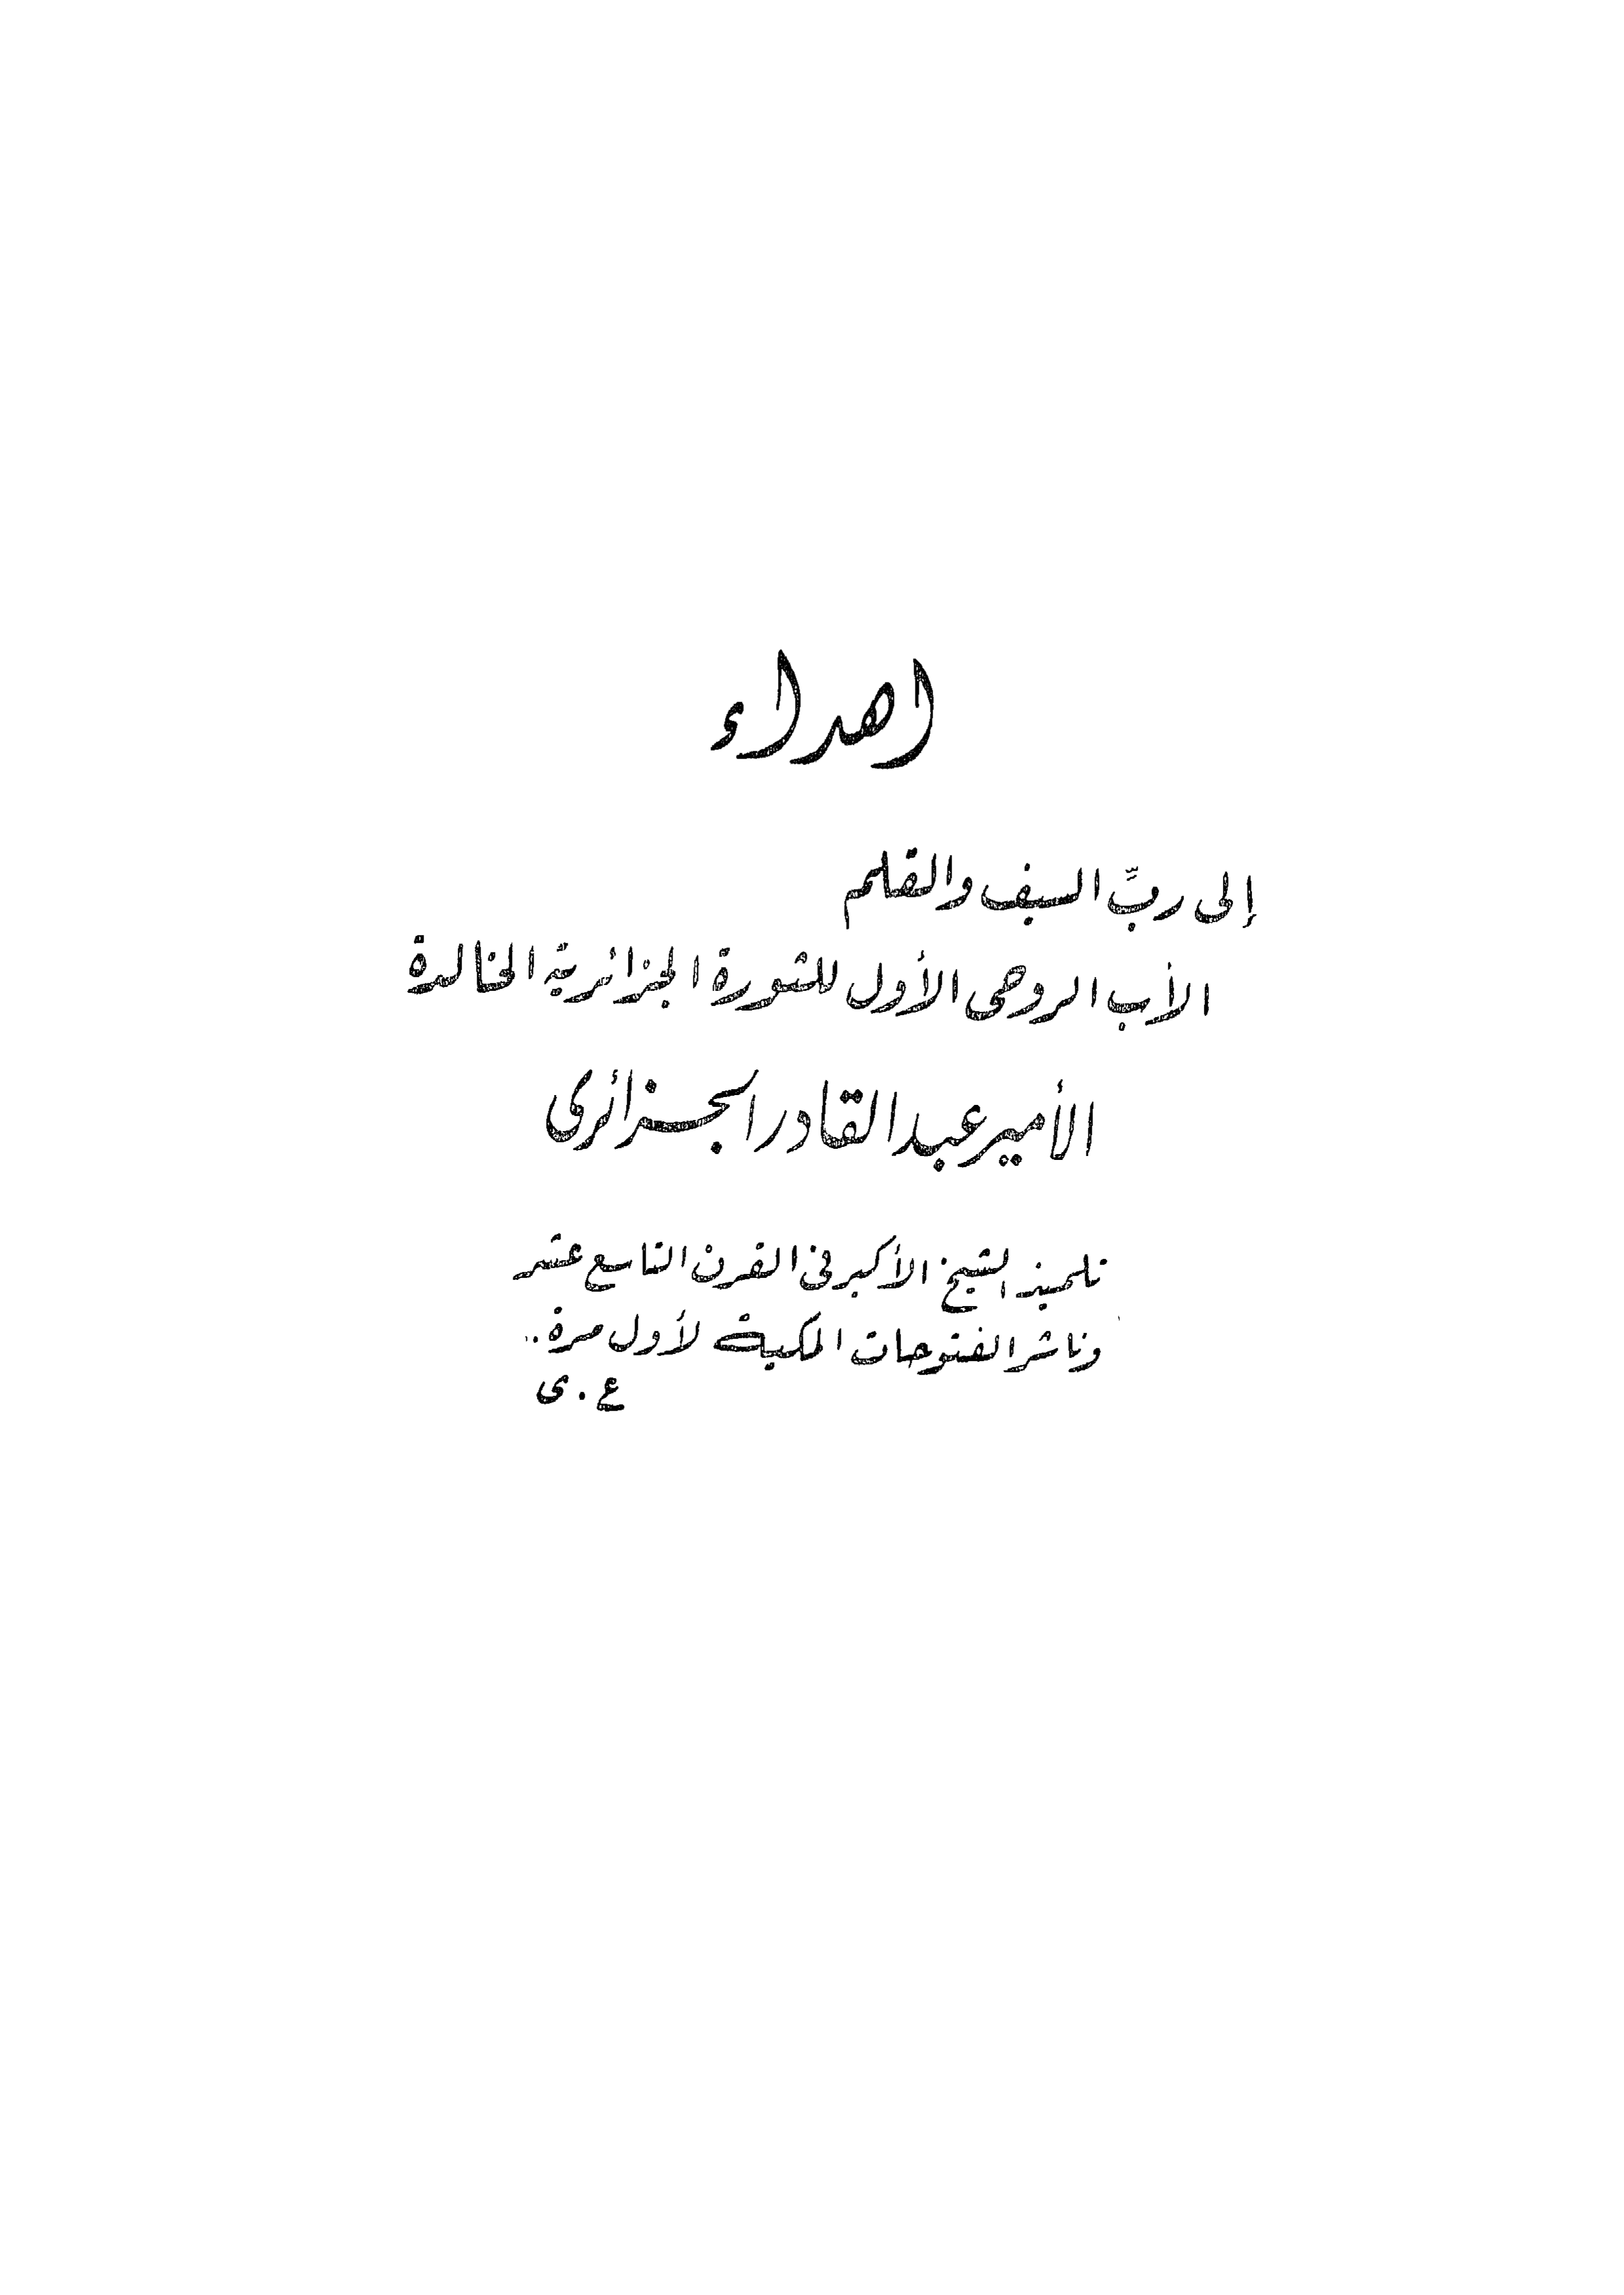 اهداء
إلى ربِّ السيف والقلم
الأب الروحى الأول للثورة الجزائرية الخالدة
الأمير عبد القادر الجزائرى
تلميذ الشيخ الأكبر فى القرن التاسع عشر
وناشر الفتوحات المكية لأول مرة..
ع . ى